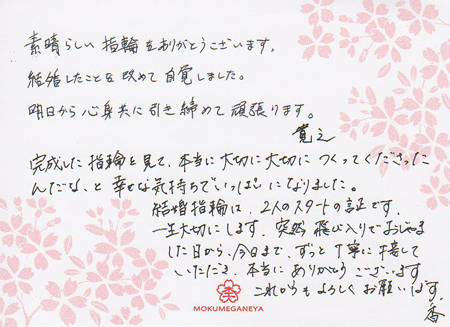 素晴らしい指輪をありがとうございます。
結婚したことを改めて自覚しました。
明日から心身共に引き締めて頑張ります。
寛之
完成した指輪を見て、本当に大切に大切につくってくださった
んだな、と幸せな気持ちでいっぱいになりました。
結婚指輪は、2人のスタートの証です。
一生大切にします。突然飛び入りでおじゃま
した日から、今日まで、ずっと丁寧に接して
いただき、本当にありがとうございます
これからもよろしくお願いします。
香
MOKUMEGANEYA